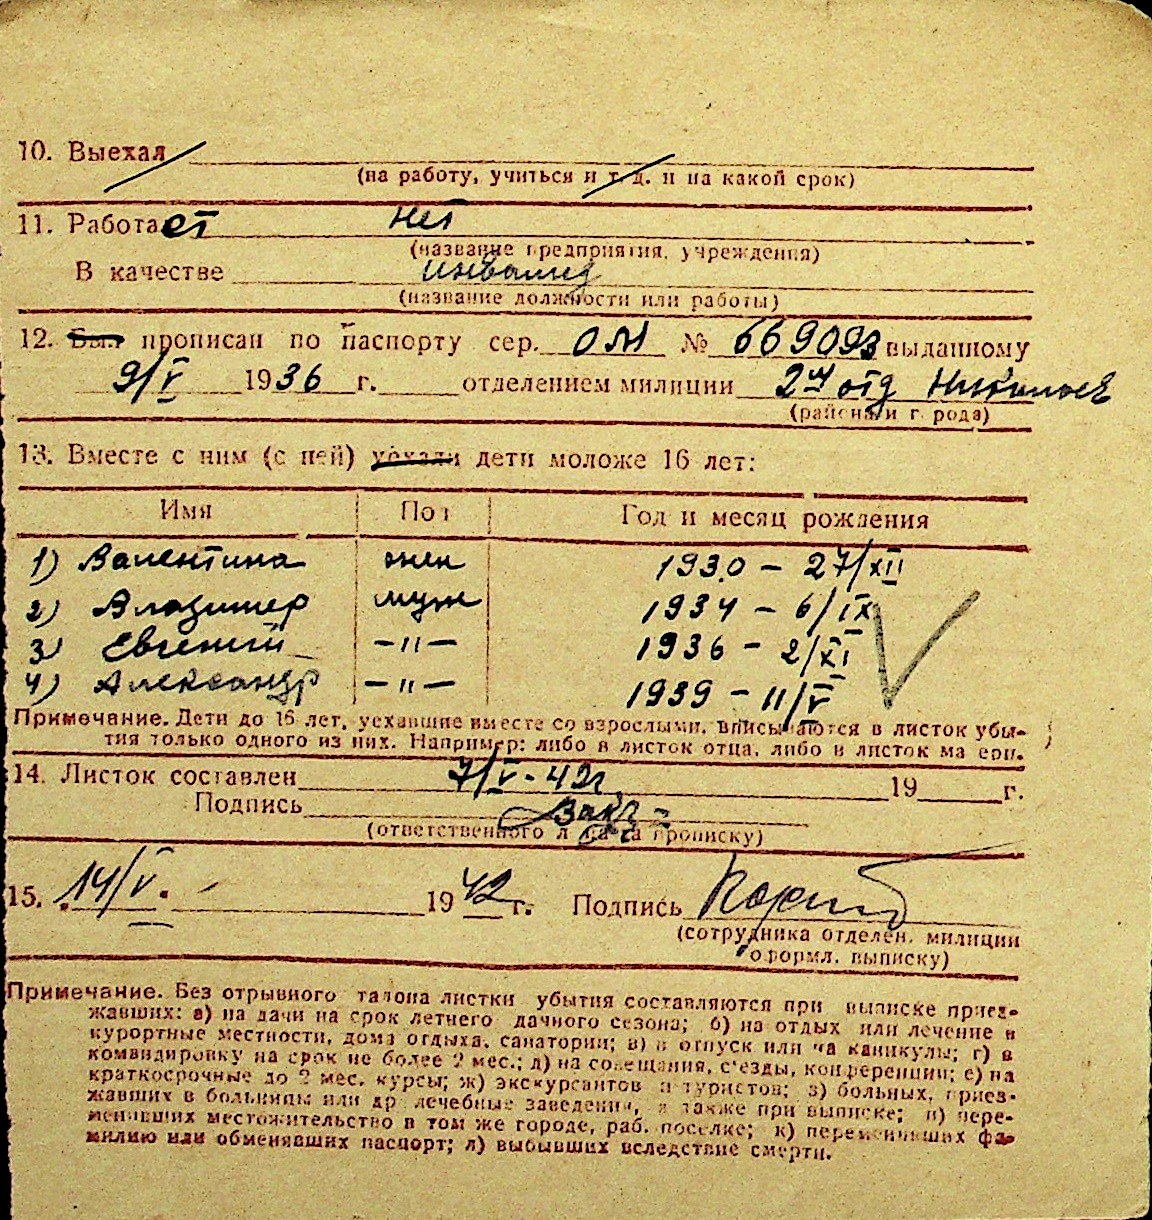 10. Выехал
(на работу, учиться и т. д. и на какой срок)
11. Работает нет
(название предприятия, учреждения)
В качестве инвалид
(название должности или работы)
12. Был прописан по паспорту сер. ОМ № 669093 выданному
9/V 1936 г. отделением милиции 2ой отд Николаев
(района и города)
13. Вместе с ним (с ней) уехали дети моложе 16 лет:
Имя Пол Год и месяц рождения
1) Валентина жен 1930 – 27/XII
2) Владимер муж 1934 – 6/IX
3) Евгений –"– 1936 – 2/XI
4) Александр –"– 1939 – 11/V
Примечание. Дети до 16 лет, уехавшие вместе со взрослыми, вписываются в листок убы-
тия только одного из них. Например: либо в листок отца, либо в листок матери.
14. Листок составлен 7/V - 42г. 19 г.
Подпись
(ответственного лица за прописку)
15. 14/V. 1942 г. Подпись
(сотрудника отделен. милиции
оформл. выписку)
Примечание. Без отрывного талона листки убытия составляются при выписке приез-
жавших: а) на дачи на срок летнего дачного сезона; б) на отдых или лечение в
курортные местности, дома отдыха, санатории; в) в отпуск или на каникулы; г) в
командировку на срок не более 2 мес.; д) на совещания, с'езды, конференции; е) на
краткосрочные до 2 мес. курсы; ж) экскурсантов и туристов; з) больных, приез-
жавших в больницы или др лечебные заведения, а также при выписке; и) пере-
менивших местожительство в том же городе, раб. поселке; к) переменивших фа-
милию или обменявших паспорт; л) выбывших вследствие смерти.